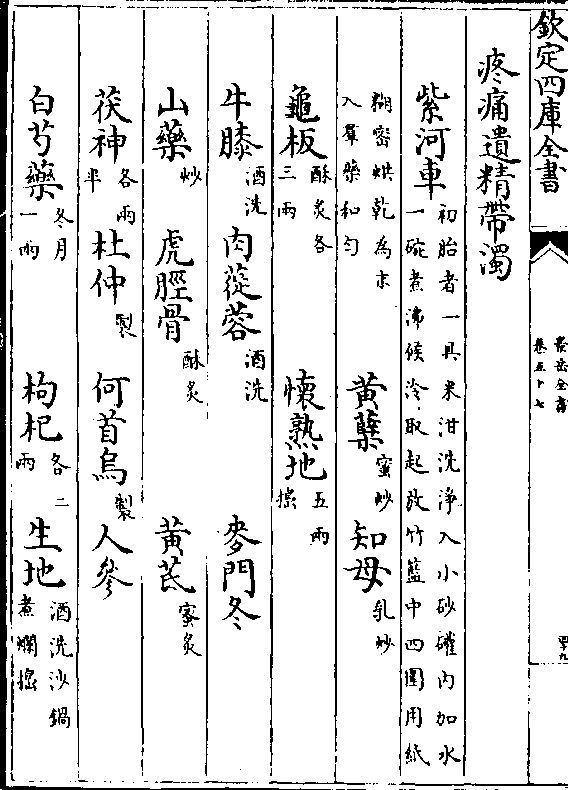 欽定四庫全書
景岳全書
卷五十七
四十九
疼痛遺精帶濁
紫河車初胎者一具米泔洗淨入小砂罐內加水
一碗煮沸候冷取起放竹籃中四圍用紙
糊密烘乾為末
入羣藥和勻
黃蘗蜜炒 知母乳炒
龜板酥炙各三兩 懷熟地五兩搗
牛膝酒洗 肉蓯蓉酒洗 麥門冬
山藥炒 虎脛骨酥炙 黃芪蜜炙
茯神各兩半 杜仲製 何首烏製 人參
白芍藥冬月一兩 枸杞各二兩 生地酒洗沙鍋煮爛搗